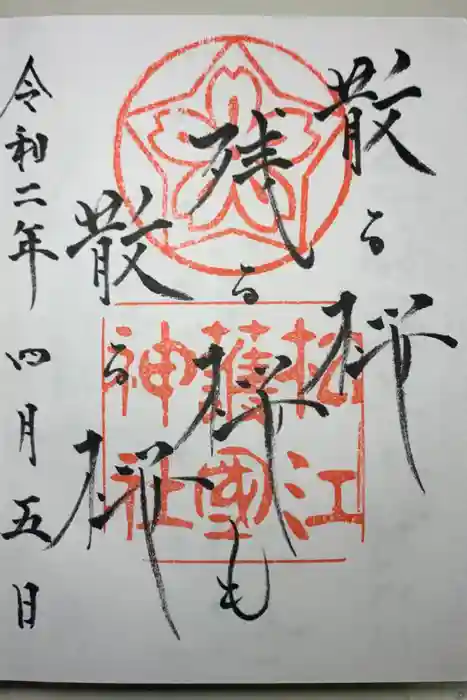 散る桜
残る桜も
散る桜
令和二年 四月五日
松江
護國
神社